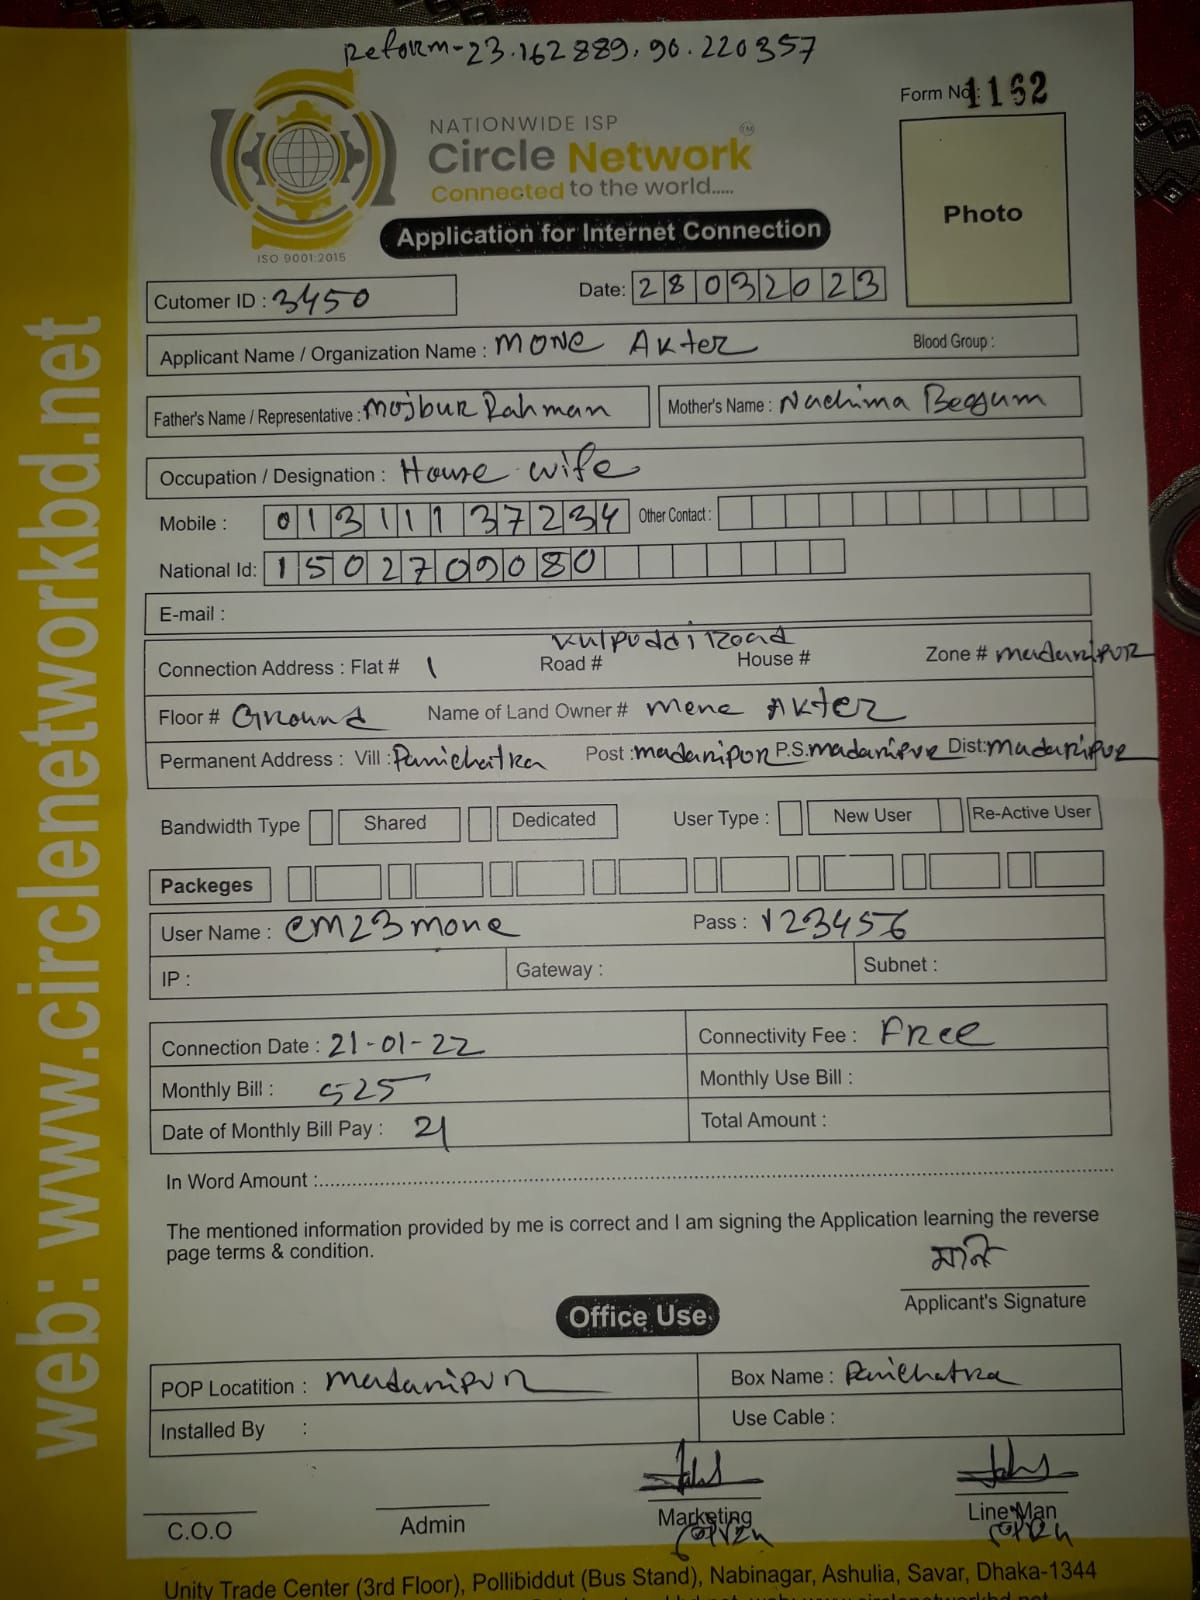 Reform-23.162889,90.220357
Form No: 1162
NATIONWIDE ISP
Circle Network TM
Connected to the world.....
ISO 9001:2015
Photo
Application for Internet Connection
Cutomer ID : 3450 Date: 28032023
Applicant Name / Organization Name : Mone Akter Blood Group :
Father's Name / Representative : Mojbur Rahman Mother's Name : Nachima Beogum
Occupation / Designation : House wife
Mobile : 01311137234 Other Contact :
National Id: 1502709080
E-mail :
Kulpuddi Road
Connection Address : Flat # 1 Road # House # Zone # madaripur
Floor # Ground Name of Land Owner # Mone Akter
Permanent Address : Vill : Panichatra Post : madaripur P.S. madaripur Dist: madaripur
Bandwidth Type Shared Dedicated User Type : New User Re-Active User
Packeges
User Name : cm23mone Pass : 123456
IP : Gateway : Subnet :
Connection Date : 21-01-22 Connectivity Fee : Free
Monthly Bill : 525 Monthly Use Bill :
Date of Monthly Bill Pay : 21 Total Amount :
In Word Amount :
The mentioned information provided by me is correct and I am signing the Application learning the reverse
page terms & condition.
মনি
Applicant's Signature
Office Use
POP Locatition : Madaripur Box Name : Panichatra
Installed By : Use Cable :
C.O.O Admin Marketing Line Man
Unity Trade Center (3rd Floor), Pollibiddut (Bus Stand), Nabinagar, Ashulia, Savar, Dhaka-1344
web: www.circlenetworkbd.net